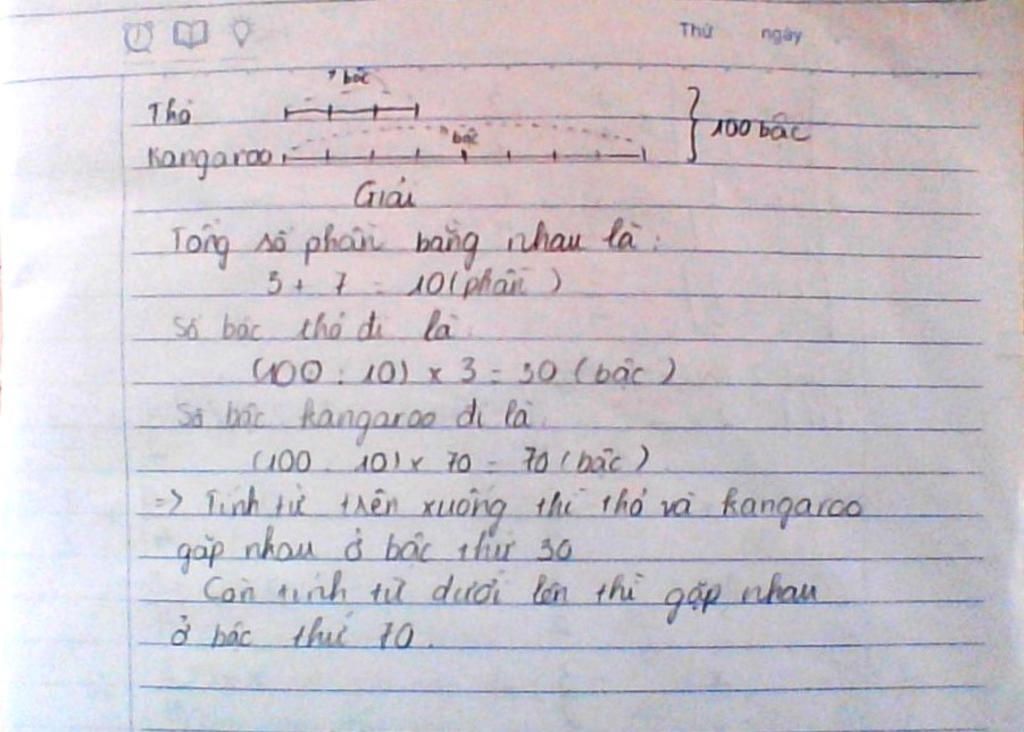 Thứ ngày
? bậc
Thỏ
100 bậc
? bậc
Kangaroo
Giải
Tổng số phần bằng nhau là :
3 + 7 = 10 (phần)
Số bậc thỏ đi là :
(100 : 10) x 3 = 30 (bậc)
Số bậc kangaroo đi là :
(100 : 10) x 70 = 70 (bậc)
=> Tính từ trên xuống thì thỏ và kangaroo
gặp nhau ở bậc thứ 30
Còn tính từ dưới lên thì gặp nhau
ở bậc thứ 70.